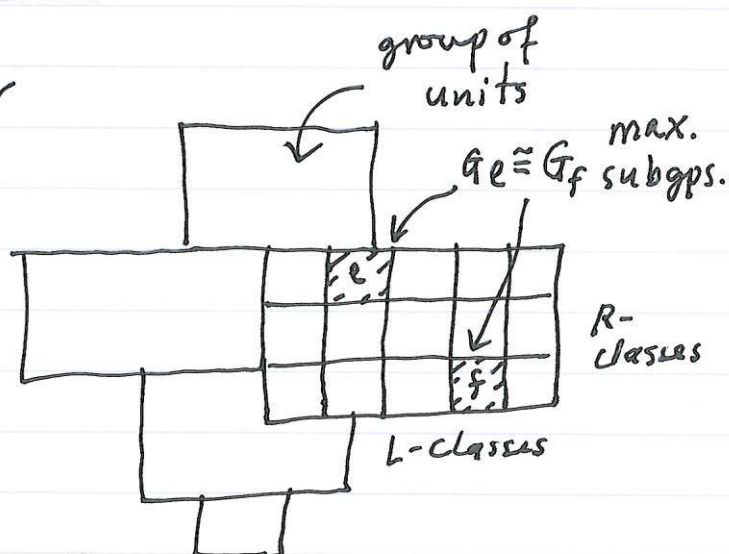 group of
units
max.
Ge ≅ Gf subgps.
e
R-
classes
f
L-classes